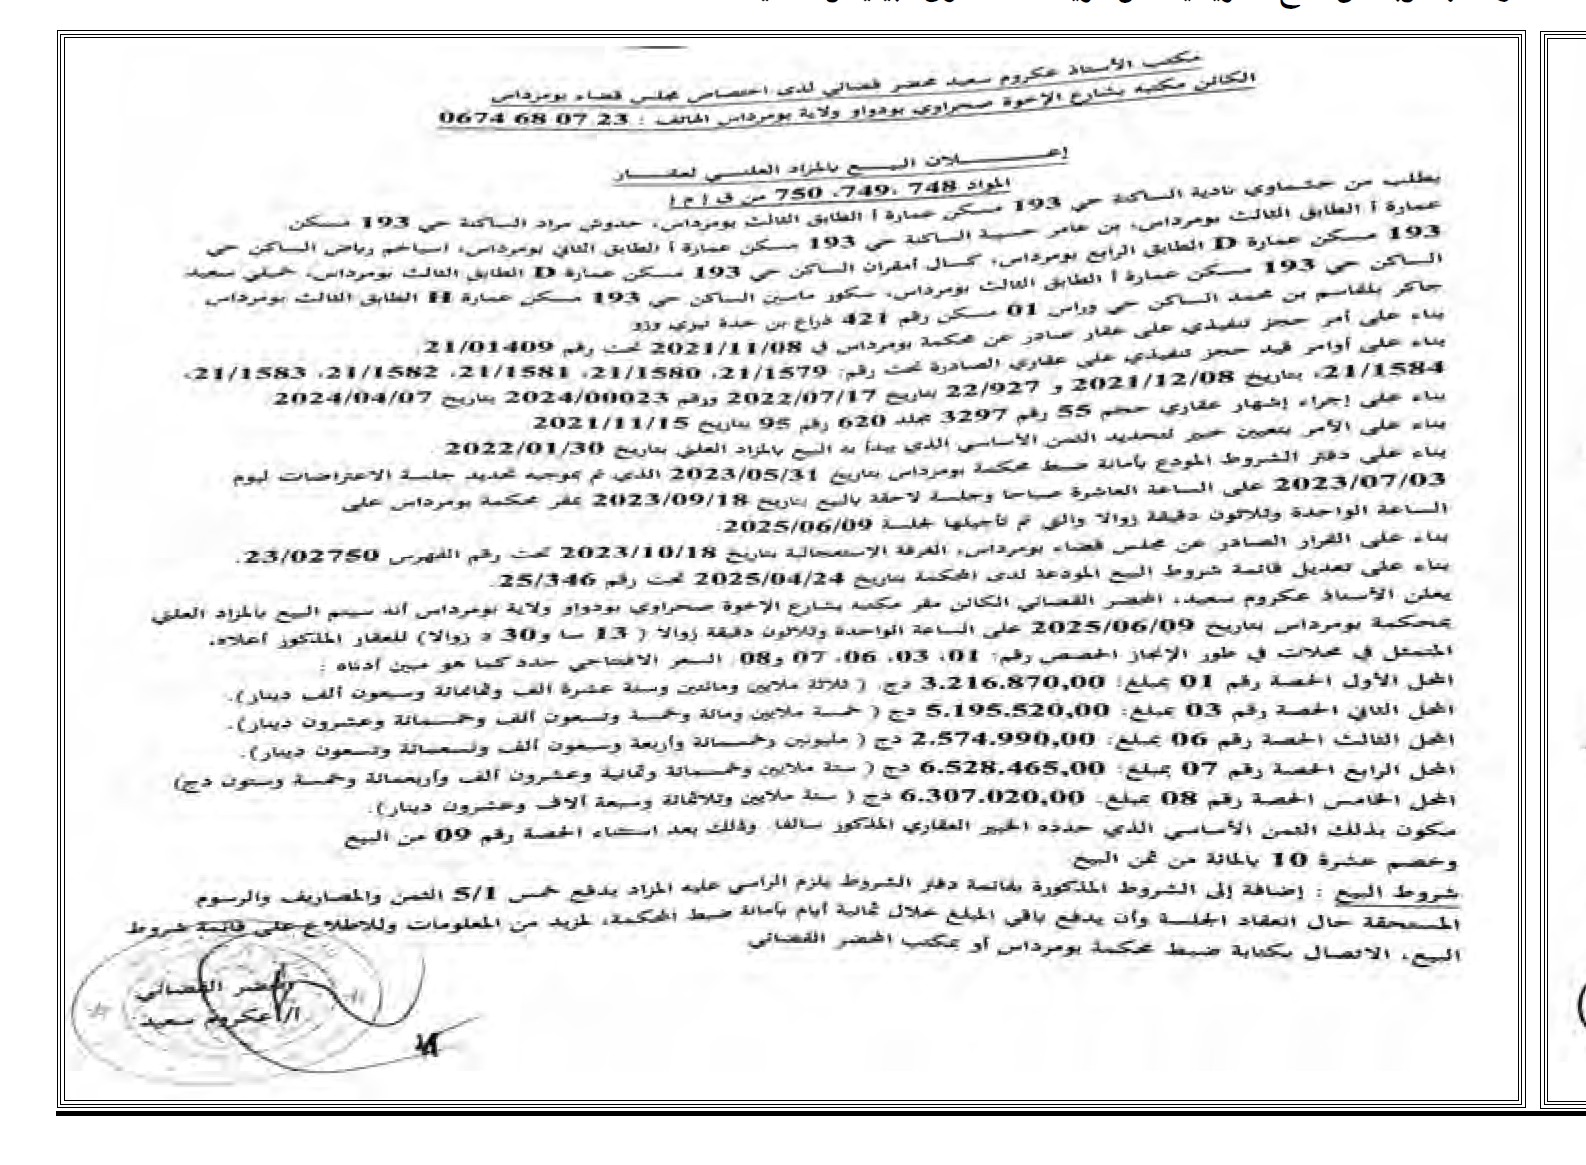 مكتب الأستاذ عكروم سعيد محضر قضائي لدى اختصاص مجلس قضاء بومرداس
الكائن مكتبه بشارع الإخوة صحراوي بودواو ولاية بومرداس الهاتف : 23 07 68 0674
إعــــــــلان البيـــع بالمزاد العلنـــي لعقـــار
المواد 748 ،749، 750 من ق إ م إ
بطلب من حشماوي نادية الساكنة حي 193 مسكن عمارة أ الطابق الثالث بومرداس، حدوش مراد الساكنة حي 193 مسكن
عمارة أ الطابق الثالث بومرداس، بن عامر حسيبة الساكنة حي 193 مسكن عمارة أ الطابق الثاني بومرداس، اسياخم رياض الساكن حي
193 مسكن عمارة D الطابق الرابع بومرداس، كمال أمقران الساكن حي 193 مسكن عمارة D الطابق الثالث بومرداس، خميلي سعيد
الساكن حي 193 مسكن عمارة أ الطابق الثالث بومرداس، سكور ماسين الساكن حي 193 مسكن عمارة H الطابق الثالث بومرداس
جاكر بلقاسم بن محمد الساكن حي وراس 01 مسكن رقم 421 ذراع بن خدة تيزي وزو
بناء على أمر حجز تنفيذي على عقار صادر عن محكمة بومرداس في 2021/11/08 تحت رقم 21/01409.
بناء على أوامر قيد حجز تنفيذي على عقاري الصادرة تحت رقم: 21/1579، 21/1580، 21/1581، 21/1582، 21/1583،
21/1584، بتاريخ 2021/12/08 و 22/927 بتاريخ 2022/07/17 ورقم 2024/00023 بتاريخ 2024/04/07.
بناء على إجراء إشهار عقاري حجم 55 رقم 3297 مجلد 620 رقم 95 بتاريخ 2021/11/15
بناء على الأمر بتعيين خبير لتحديد الثمن الأساسي الذي يبدأ به البيع بالمزاد العلني بتاريخ 2022/01/30
بناء على دفتر الشروط المودع بأمانة ضبط محكمة بومرداس بتاريخ 2023/05/31 الذي تم بموجبه تحديد جلسة الاعتراضات ليوم
2023/07/03 على الساعة العاشرة صباحا وجلسة لاحقة بالبيع بتاريخ 2023/09/18 بمقر محكمة بومرداس على
الساعة الواحدة وثلاثون دقيقة زوالا والتي تم تأجيلها لجلسة 2025/06/09.
بناء على القرار الصادر عن مجلس قضاء بومرداس، الغرفة الاستعجالية بتاريخ 2023/10/18 تحت رقم الفهرس 23/02750.
بناء على تعديل قائمة شروط البيع المودعة لدى المحكمة بتاريخ 2025/04/24 تحت رقم 25/346.
يعلن الأستاذ عكروم سعيد، المحضر القضائي الكائن مقر مكتبه بشارع الإخوة صحراوي بودواو ولاية بومرداس أنه سيتم البيع بالمزاد العلني
بمحكمة بومرداس بتاريخ 2025/06/09 على الساعة الواحدة وثلاثون دقيقة زوالا ( 13 سا و30 د زوالا) للعقار المذكور أعلاه،
المتمثل في محلات في طور الإنجاز الحصص رقم: 01، 03، 06، 07 و08. السعر الافتتاحي حدد كما هو مبين أدناه :
المحل الأول الحصة رقم 01 بمبلغ: 3.216.870,00 دج. ( ثلاثة ملايين ومائتين وستة عشرة الف وثمانمائة وسبعون ألف دينار).
المحل الثاني الحصة رقم 03 بمبلغ: 5.195.520,00 دج ( خمسة ملايين ومائة وخمسة وتسعون ألف وخمسمائة وعشرون دينار).
المحل الثالث الحصة رقم 06 بمبلغ: 2.574.990,00 دج ( مليونين وخمسمائة وأربعة وسبعون ألف وتسعمائة وتسعون دينار).
المحل الرابع الحصة رقم 07 بمبلغ: 6.528.465,00 دج ( ستة ملايين وخمسمائة وثمانية وعشرون ألف وأربعمائة وخمسة وستون دج)
المحل الخامس الحصة رقم 08 بمبلغ: 6.307.020,00 دج ( ستة ملايين وثلاثمائة وسبعة آلاف وعشرون دينار).
مكون بذلك الثمن الأساسي الذي حدده الخبير العقاري المذكور سالفا. وذلك بعد استثناء الحصة رقم 09 من البيع
وخصم عشرة 10 بالمائة من ثمن البيع
شروط البيع : إضافة إلى الشروط المذكورة بقائمة دفتر الشروط يلزم الراسي عليه المزاد بدفع خمس 5/1 الثمن والمصاريف والرسوم
المستحقة حال انعقاد الجلسة وأن يدفع باقي المبلغ خلال ثمانية أيام بأمانة ضبط المحكمة، لمزيد من المعلومات وللاطلاع على قائمة شروط
البيع، الاتصال بكتابة ضبط محكمة بومرداس أو بمكتب المحضر القضائي
المحضر القضائي
أ/ عكروم سعيد